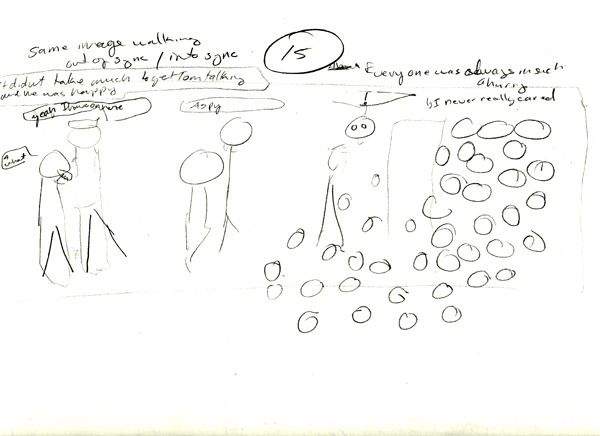 Same image walking
out of sync / into sync
15
t didnt take much to get Tom talking
and he was happy
yeah
a spy
a what
Everyone was always in such
a hurry
I never really cared